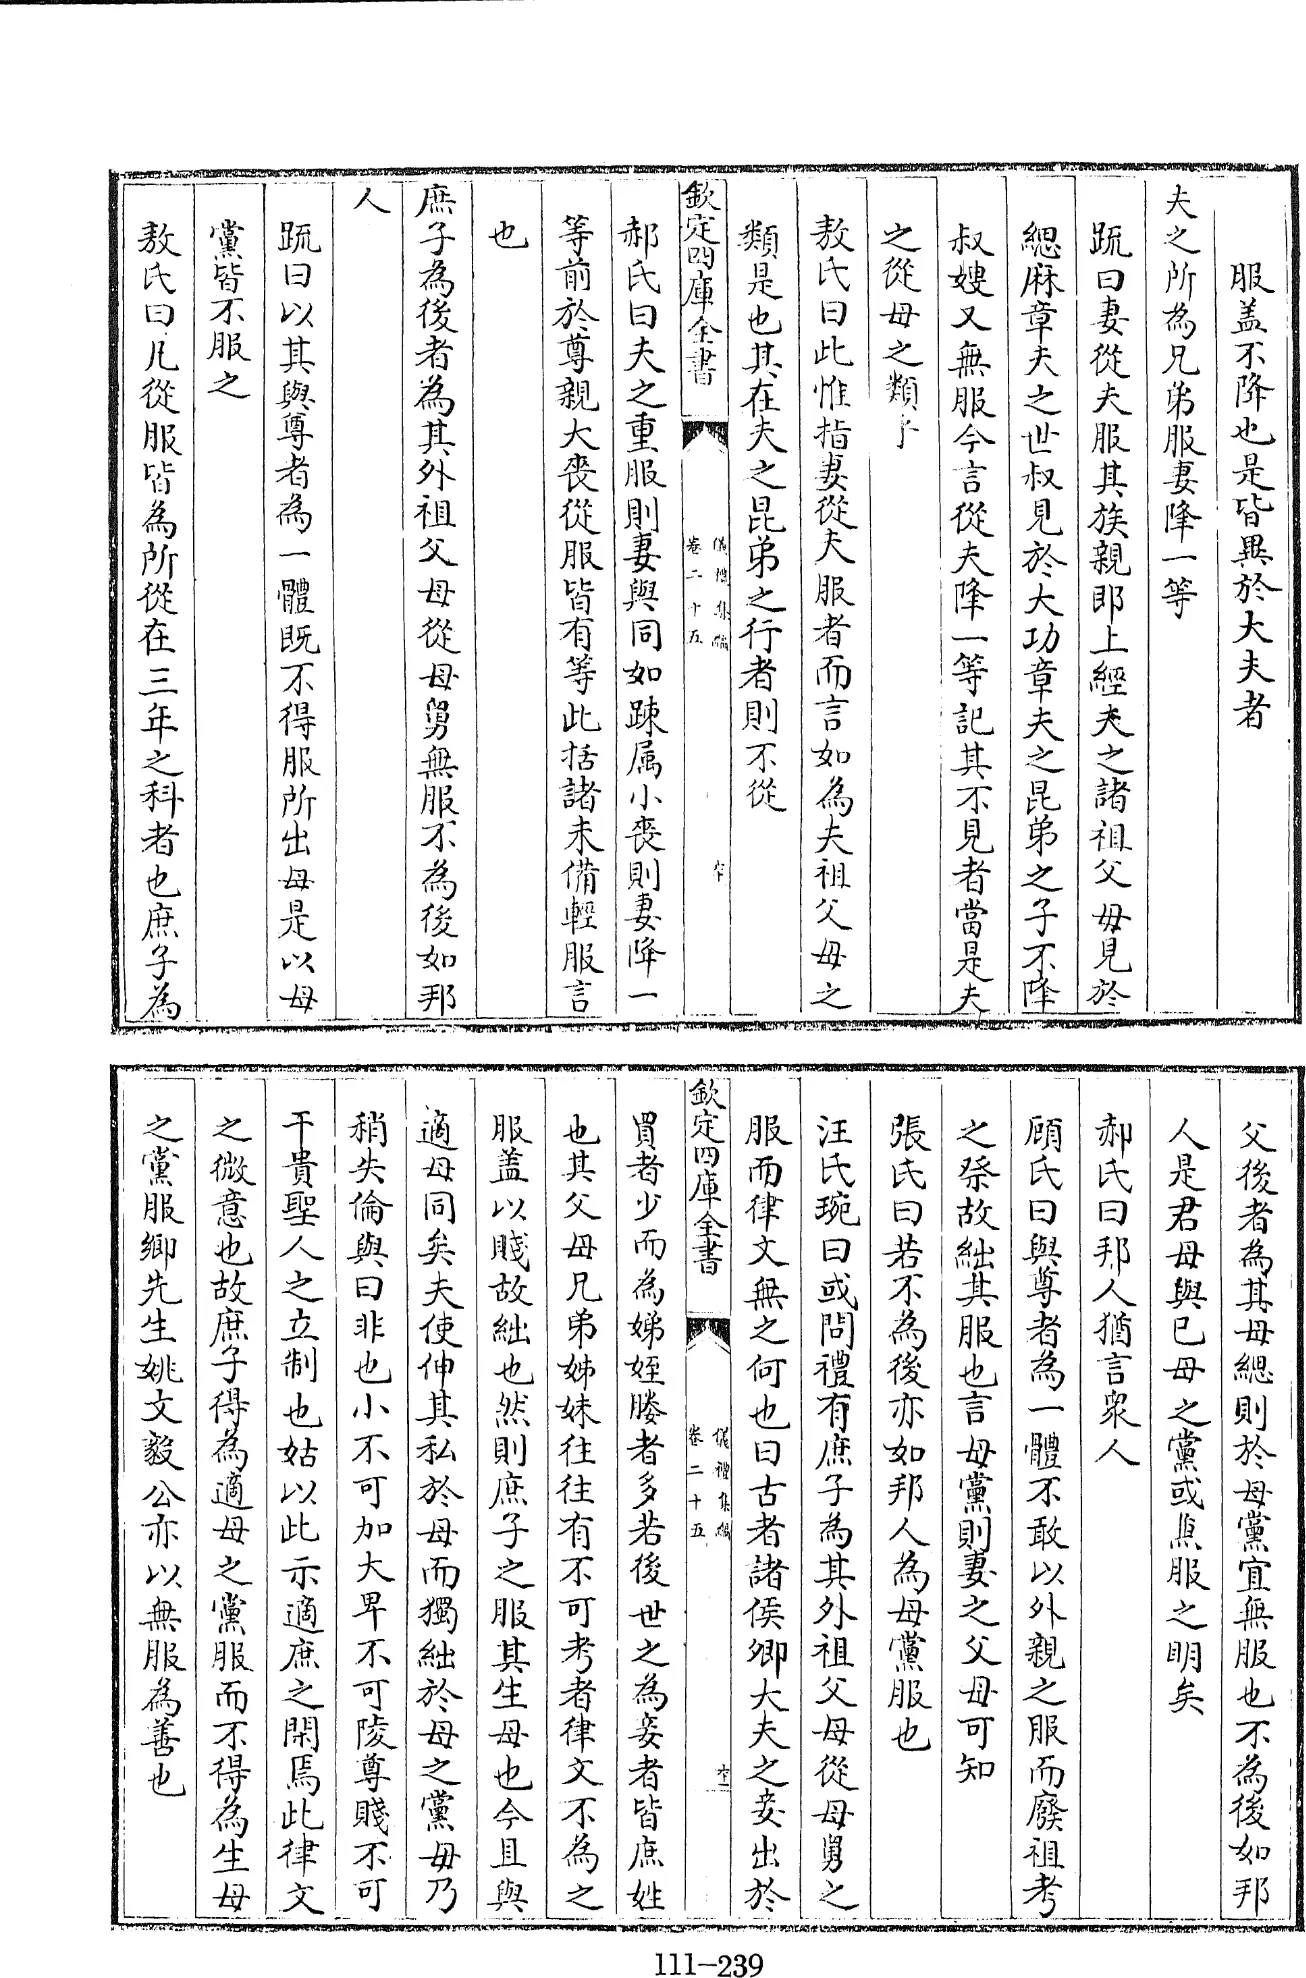 服盖不降也是皆異於大夫者
夫之所為兄弟服妻降一等
疏曰妻從夫服其族親即上經夫之諸祖父母見於
緦麻章夫之世叔見於大功章夫之昆弟之子不降
叔嫂又無服今言從夫降一等記其不見者當是夫
之從母之類乎
敖氏曰此惟指妻從夫服者而言如為夫祖父母之
類是也其在夫之昆弟之行者則不從
欽定四庫全書
儀禮集編
卷二十五
郝氏曰夫之重服則妻與同如踈属小喪則妻降一
等前於尊親大喪從服皆有等此括諸未備輕服言
也
庶子為後者為其外祖父母從母舅無服不為後如邦
人
疏曰以其與尊者為一體既不得服所出母是以母
黨皆不服之
敖氏曰凡從服皆為所從在三年之科者也庶子為
父後者為其母緦則於母黨宜無服也不為後如邦
人是君母與已母之黨或並服之明矣
郝氏曰邦人猶言衆人
顧氏曰與尊者為一體不敢以外親之服而廢祖考
之祭故絀其服也言母黨則妻之父母可知
張氏曰若不為後亦如邦人為母黨服也
汪氏琬曰或問禮有庶子為其外祖父母從母舅之
服而律文無之何也曰古者諸侯卿大夫之妾出於
欽定四庫全書
儀禮集編
卷二十五
買者少而為娣姪媵者多若後世之為妾者皆庶姓
也其父母兄弟姊妹往往有不可考者律文不為之
服盖以賤故絀也然則庶子之服其生母也今且與
適母同矣夫使伸其私於母而獨絀於母之黨毋乃
稍失倫與曰非也小不可加大卑不可陵尊賤不可
干貴聖人之立制也姑以此示適庶之閑焉此律文
之微意也故庶子得為適母之黨服而不得為生母
之黨服鄉先生姚文毅公亦以無服為善也
111-239